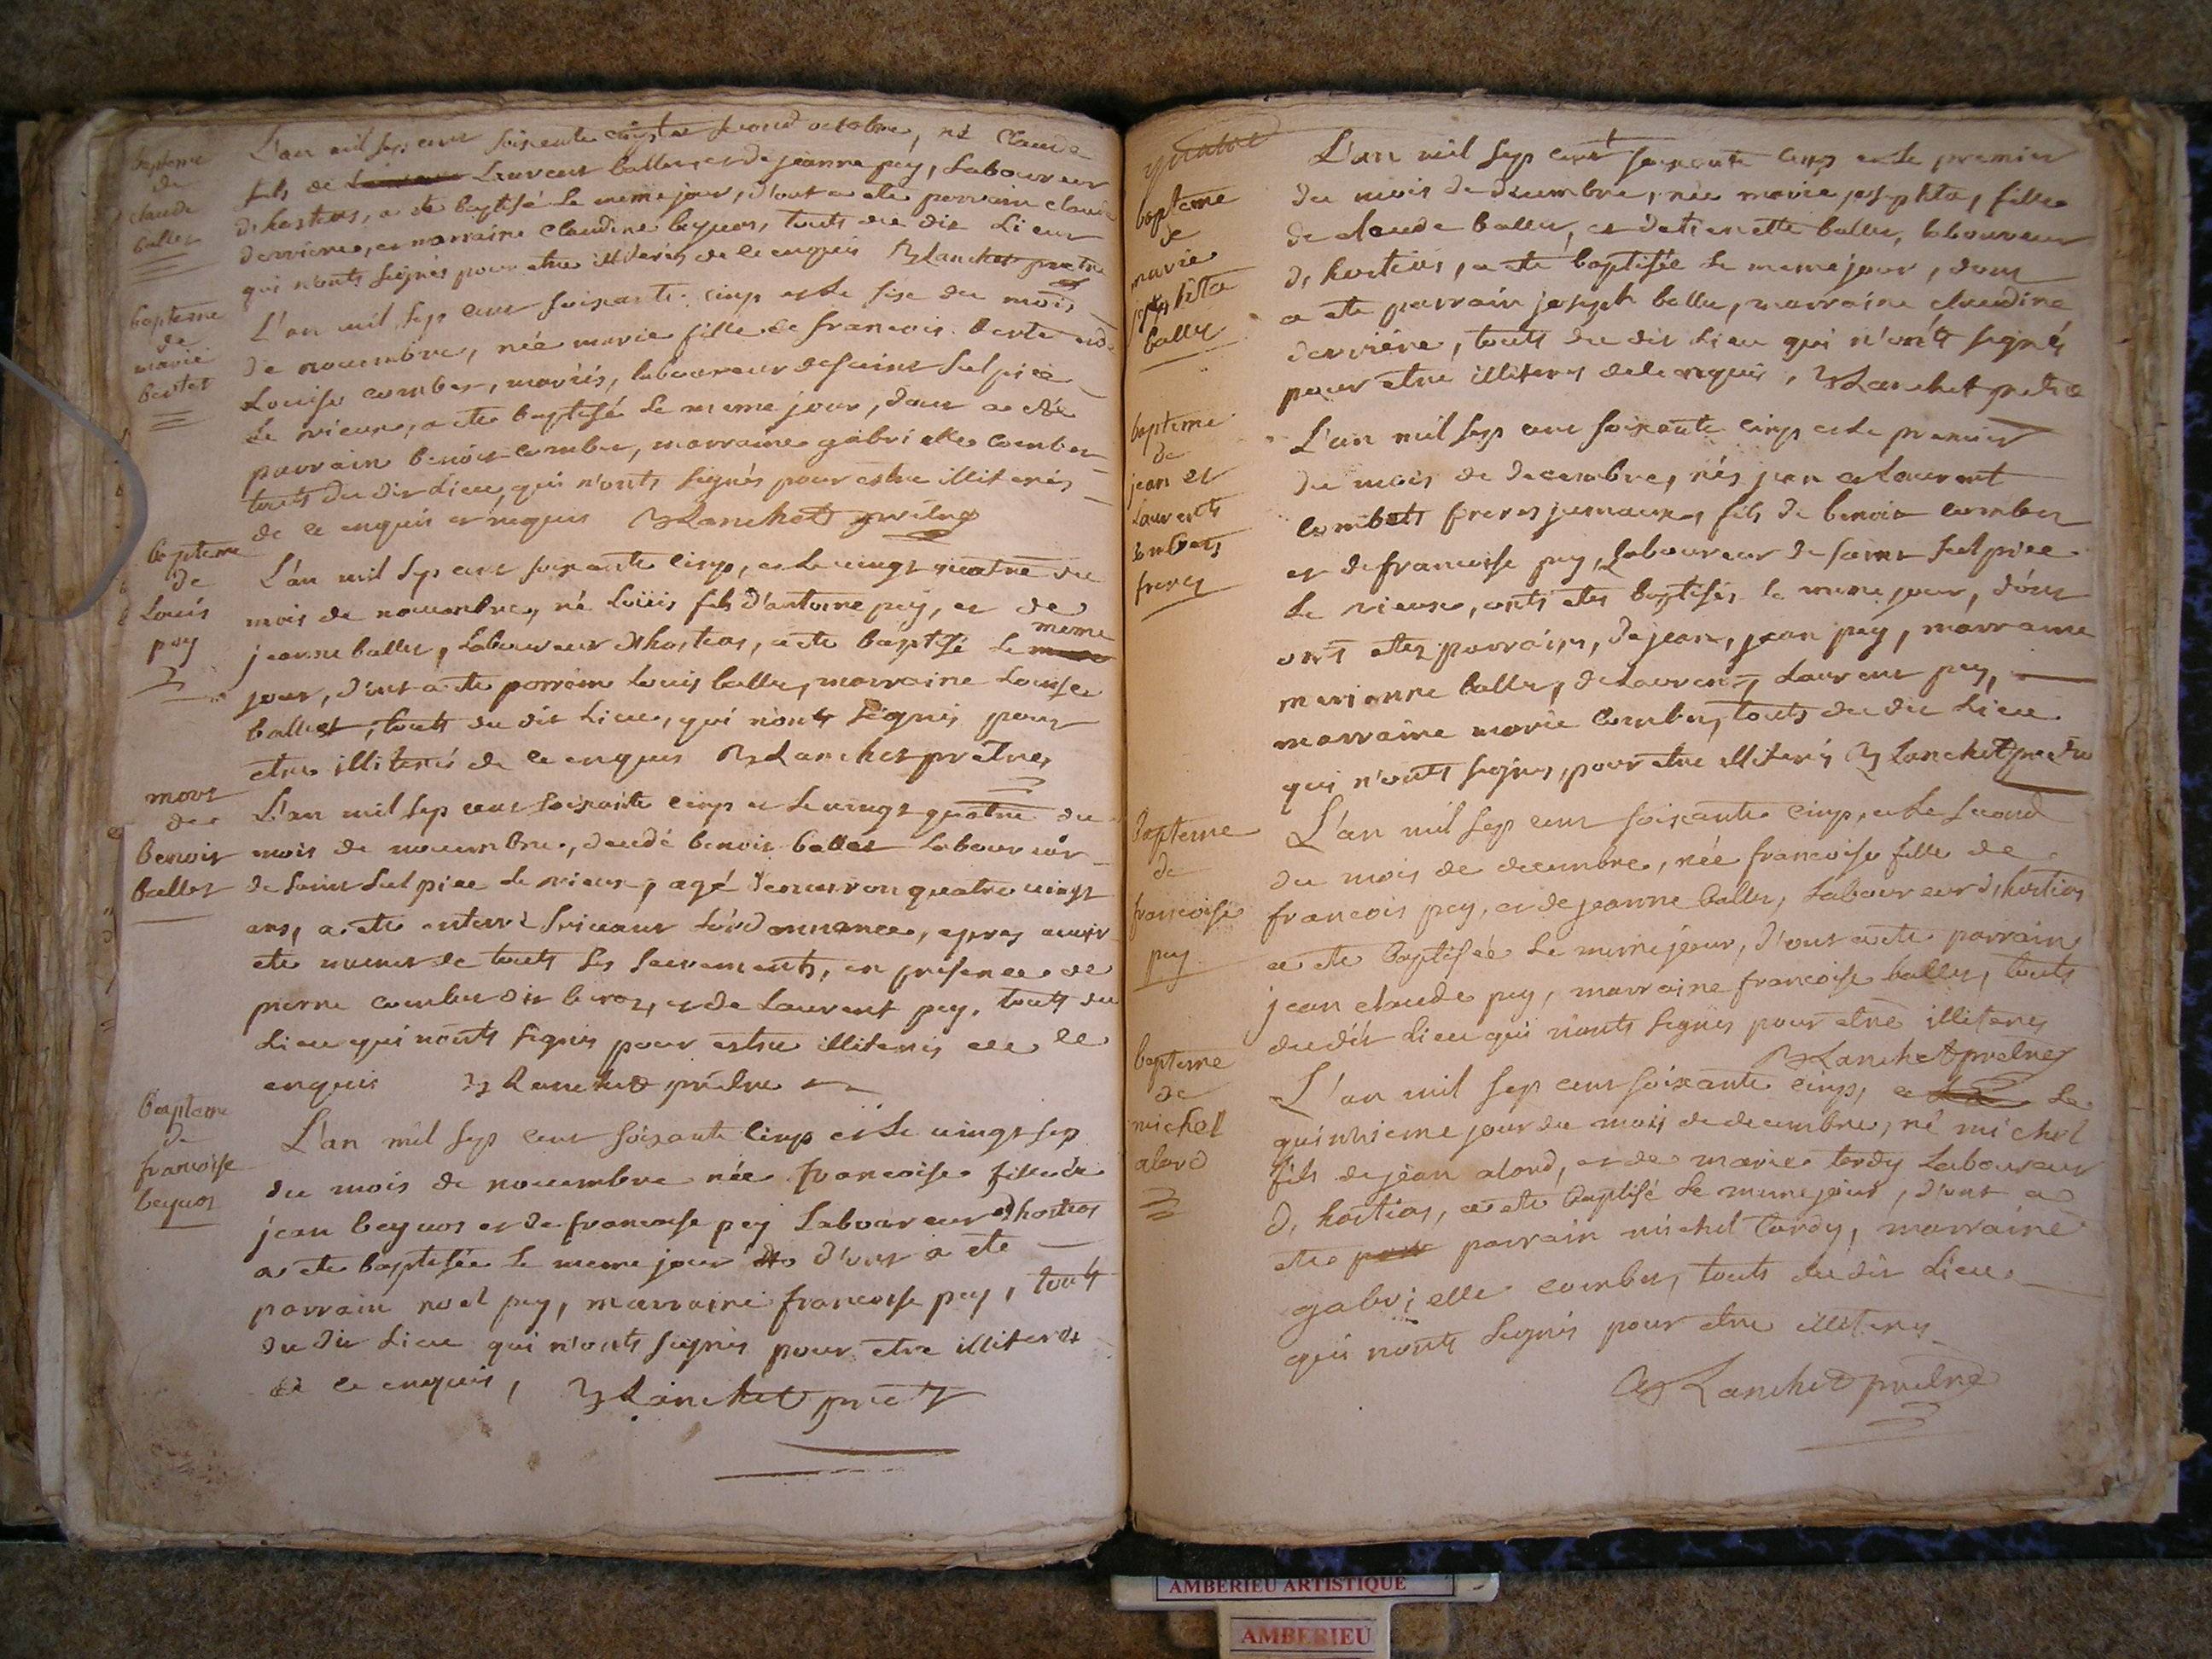 bapteme
de
claude
ballet
L'an mil sept cent soixante cinq et le second octobre, né Claude
fils de Laurent ballet, et de jeanne pey, Laboureur
d, hostias, a ete baptisé le meme jour, d'ont a ete parrain claude
derriere, et marraine claudine beguos, touts du dit Lieu
qui n'onts signés pour etre illiterés de ce enquis Blanchet pretre
bapteme
de
marie
bertet
L'an mil sept cent soixante cinq et le sixe du mois
de nouembre, née marie fille de francois bertet et de
Louise combet, mariés, laboureur de saint sulpice
Le vieux, a ete baptisé le meme jour, dont a été
parrain benoit combet, marraine gabrielle combet
touts du dit Lieu, qui n'onts signés pour estre illiterés
de ce enquis et requis Blanchet pretre
bapteme
de
Louis
pey
L'an mil sept cent soixante cinq, et le uingt quatre du
mois de nouembre, né Loüis fils d'antoine pey, et de
jeanne ballet, Laboureur d'hostias, a ete baptisé le meme
jour, d'ont a ete parrain Louis ballet, marraine Louise
ballet, touts du dit Lieu, qui n'onts signés pour
etre illiterés de ce enquis Blanchet pretre
mort
de
benoit
ballet
L'an mil sept cent soixante cinq et le uingt quatre du
mois de nouembre, decedé benoit ballet Laboureur
de saint sulpice le vieux, agé d'enuiron quatre uingt
ans, a ete enterré suiuant L'ordonnance, apres auoir
ete muni de touts les sacrements, en presence de
pierre combet dit beroz, et de Laurent pey, touts du
Lieu qui n'onts signés pour estre illiterés de ce
enquis Blanchet pretre
bapteme
de
francoise
beguos
L'an mil sept cent soixante cinq et le uingt sep
du mois de nouembre née francoise fille de
jean beguos et de francoise pey Laboureur d'hostias
a ete baptisée le meme jour d'ont a ete
parrain noel pey, marraine francoise pey, touts
du dit Lieu qui n'onts signés pour etre illiterés
de ce enquis, Blanchet pretre
bapteme
de
marie
josephta
ballet
L'an mil sept cent soixante cinq et le premier
du mois de decembre, née marie josephta, fille
de claude ballet, et d'etienette ballet, laboureur
d, hostias, a eté baptisée le meme jour, dont
a ete parrain joseph ballet, marraine claudine
derriére, touts du dit Lieu qui n'onts signés
pour etre illiterés de ce enquis, Blanchet pretre
bapteme
de
jean et
Laurents
combets
freres
L'an mil sept cent soixante cinq et le premier
du mois de decembre, nés jean et Laurent
combets freres jumeaux, fils de benoit combet
et de francoise pey, Laboureur de saint sulpice
Le vieux, onts etes baptisés le meme jour, d'ont
onts etes parrains, de jean, jean pey, marraine
marianne ballet, de Laurent, Laurent pey,
marraine marie combet, touts du dit Lieu
qui n'onts signés, pour etre illiterés Blanchet pretre
bapteme
de
francoise
pey
L'an mil sept cent soixante cinq, et le second
du mois de decembre, née francoise fille de
francois pey, et de jeanne ballet, Laboureur d, hostias
a ete baptiseé le meme jour, d'ont a ete parrain
jean claude pey, marraine francoise ballet, touts
du dit Lieu qui n'onts signés pour etre illiterés
Blanchet pretre
bapteme
de
michel
alard
L'an mil sept cent soixante cinq, et le
quinzieme jour du mois de decembre, né michel
fils de jean alard, et de marie tardy Laboureur
d, hostias, a ete baptisé le meme jour, d'ont a
ete parrain michel tardy, marraine
gabrielle combet, touts du dit Lieu
qui n'onts signés pour etre illiterés
Blanchet pretre
AMBERIEU ARTISTIQUE
AMBERIEU